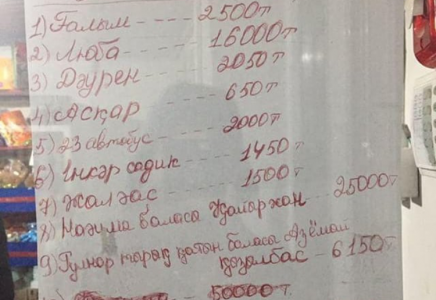 1) Ғалым --- 2500т
2) Люба --- 16000т
3) Дәурен --- 2050т
4) Асқар --- 650т
5) 23 автобус --- 2000т
6) Інкәр садик --- 1450т
7) Жалғас --- 1500т
8) Назима баласы Жомаржан -- 25000т
9) Гулнар тарақ қатын баласы Аземай
қозалбас - 6150т
50000т